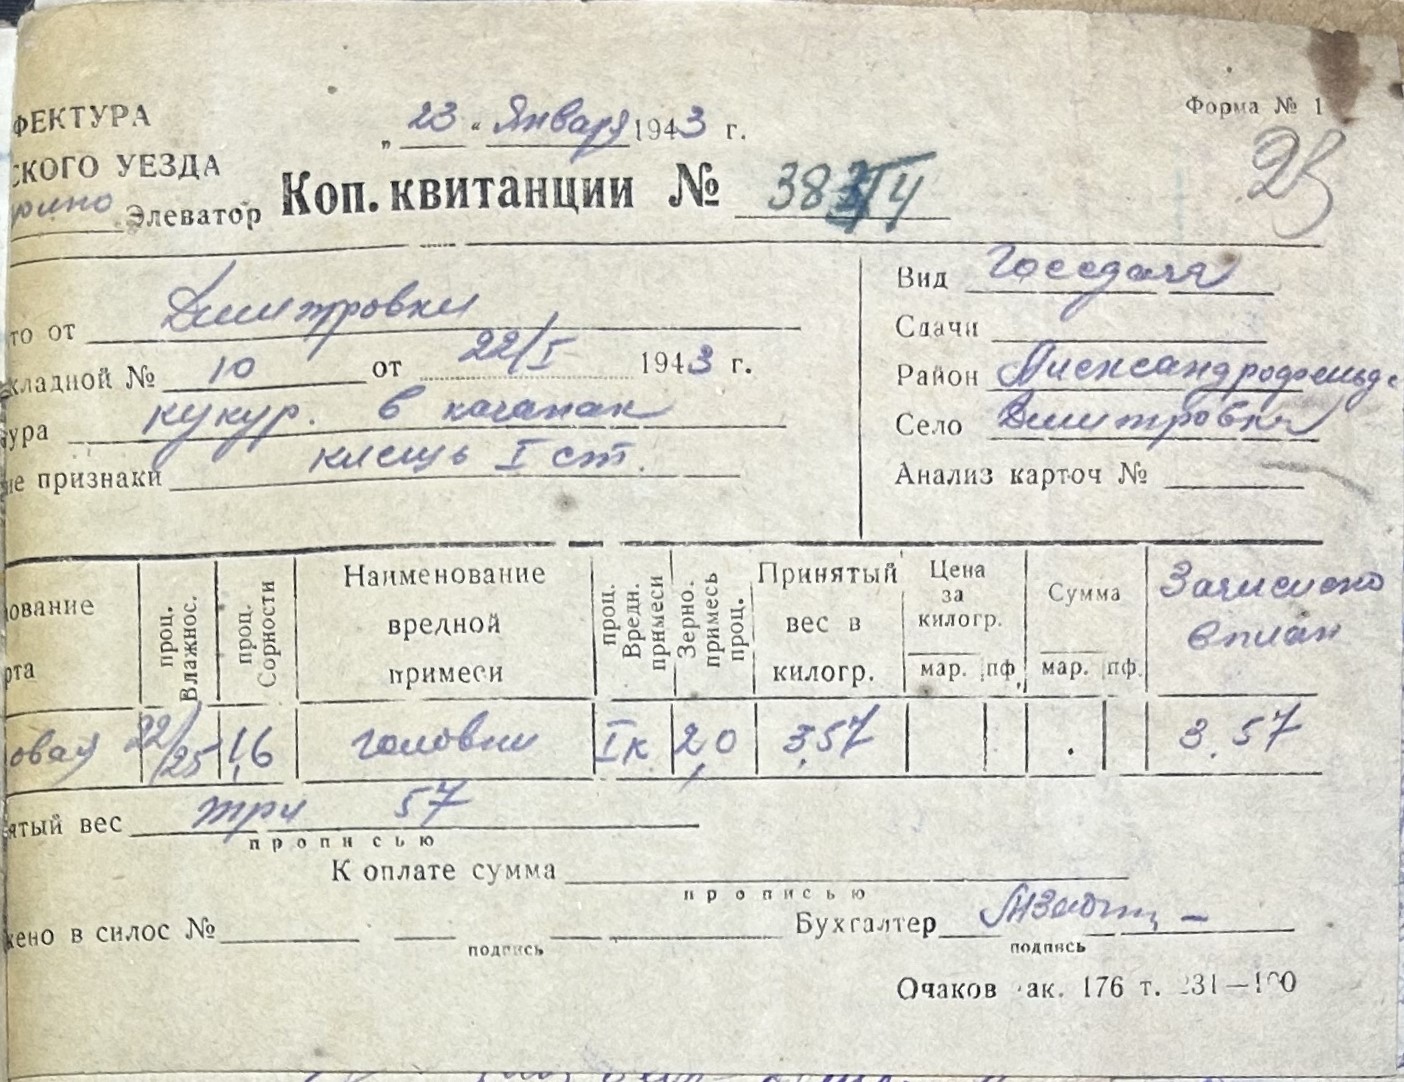 ФЕКТУРА
СКОГО УЕЗДА
рино Элеватор
„ 23 " Января 1943 г.
Форма № 1
Коп. квитанции №
то от Димитровки
кладной № 10 от 22/I 1943 г.
ура кукур. в качанах
ие признаки клещь I ст.
Вид Госсдача
Сдачи
Район Александрофельд.
Село Димитровка
Анализ карточ №
ование
рта
проц. Влажнос.
проц. Сорности
Наименование вредной примеси
проц. Вредн. примеси
Зерно. примесь проц.
Принятый вес в килогр.
Цена за килогр.
мар. пф.
Сумма
мар. пф.
Зачислено в план
овая 22/25 1,6 головни Iк 2,0 357 3.57
ятый вес три 57
прописью
К оплате сумма
прописью
жено в силос №
подпись
Бухгалтер
подпись
Очаков ак. 176 т.